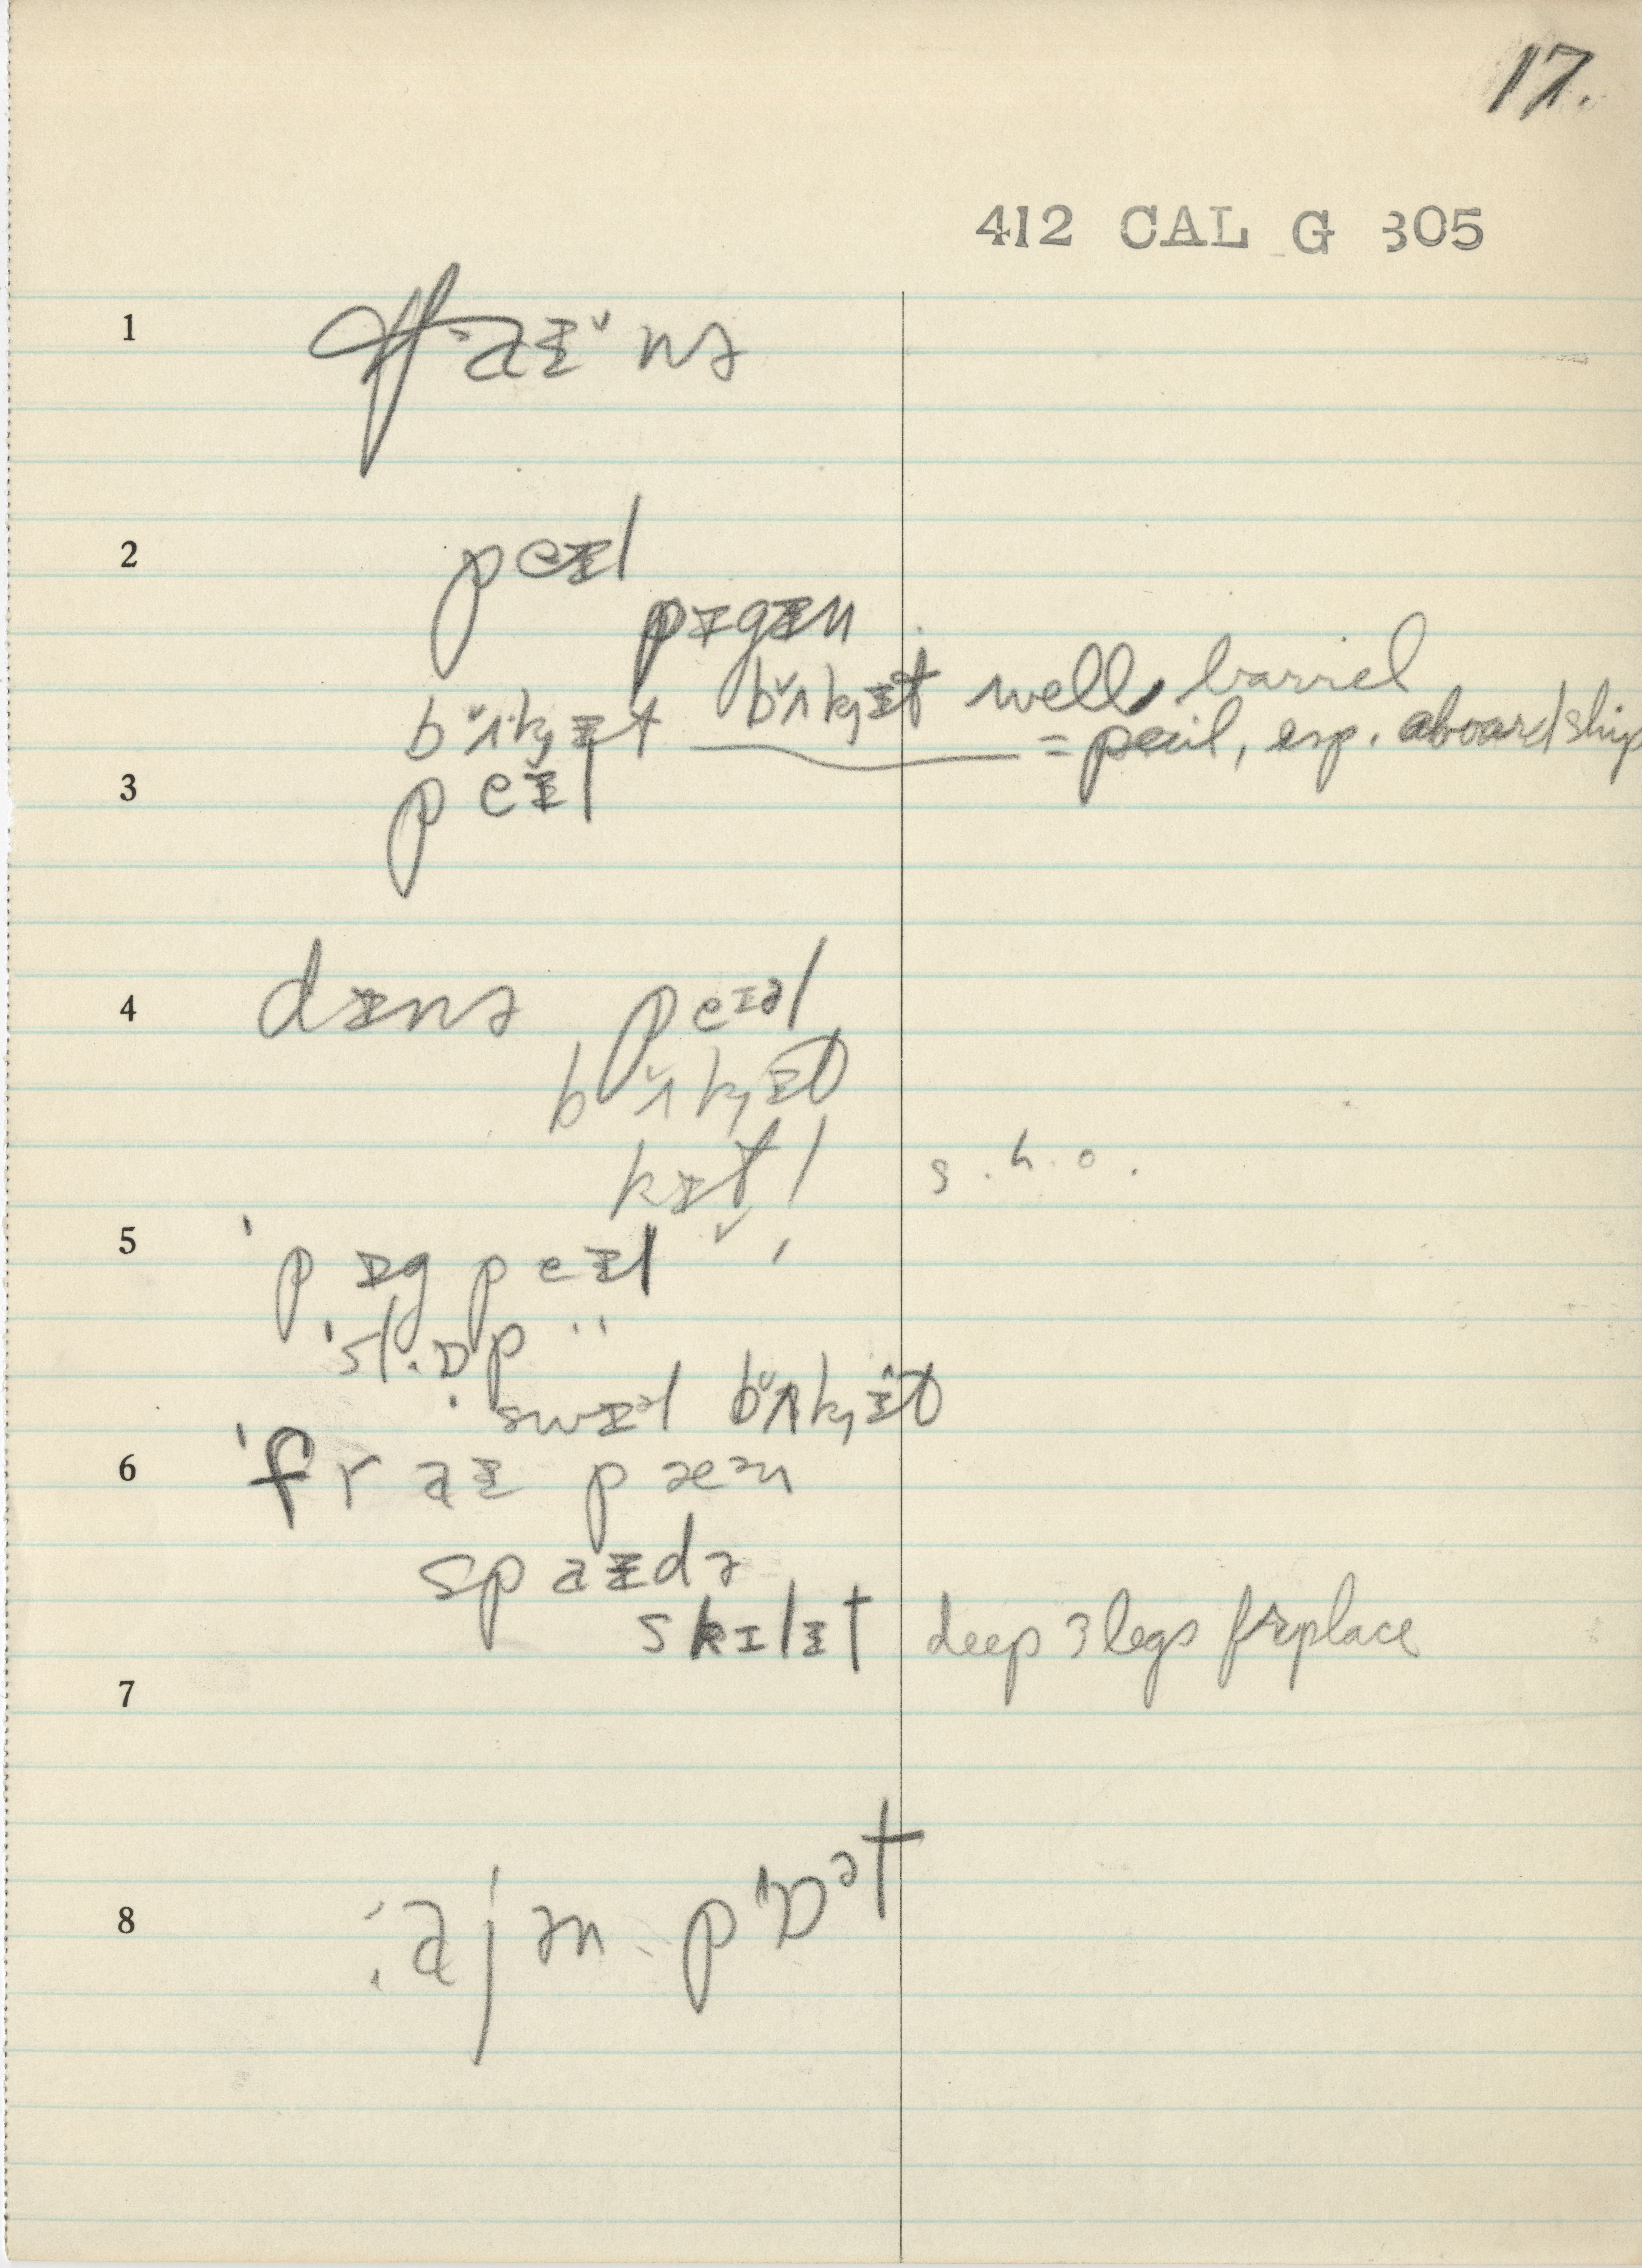 17.
412 CAL G 305
1
2 peɪl
pɪgɪn
bʌkɪt bʌkɪt well, barrel
= pail, esp. aboard ship
3 peɪl
4 dɪnɚ peɪəl
bʌkɪt
kɪtl s.h.o.
5 'pɪg peɪl " ,
'sl.ɒp "
'swɪəl bʌkɪt
6 'fraɪ pæən
spaɪdɚ
skɪlɪt deep 3 legs firplace
7
8 :ajən pɒət